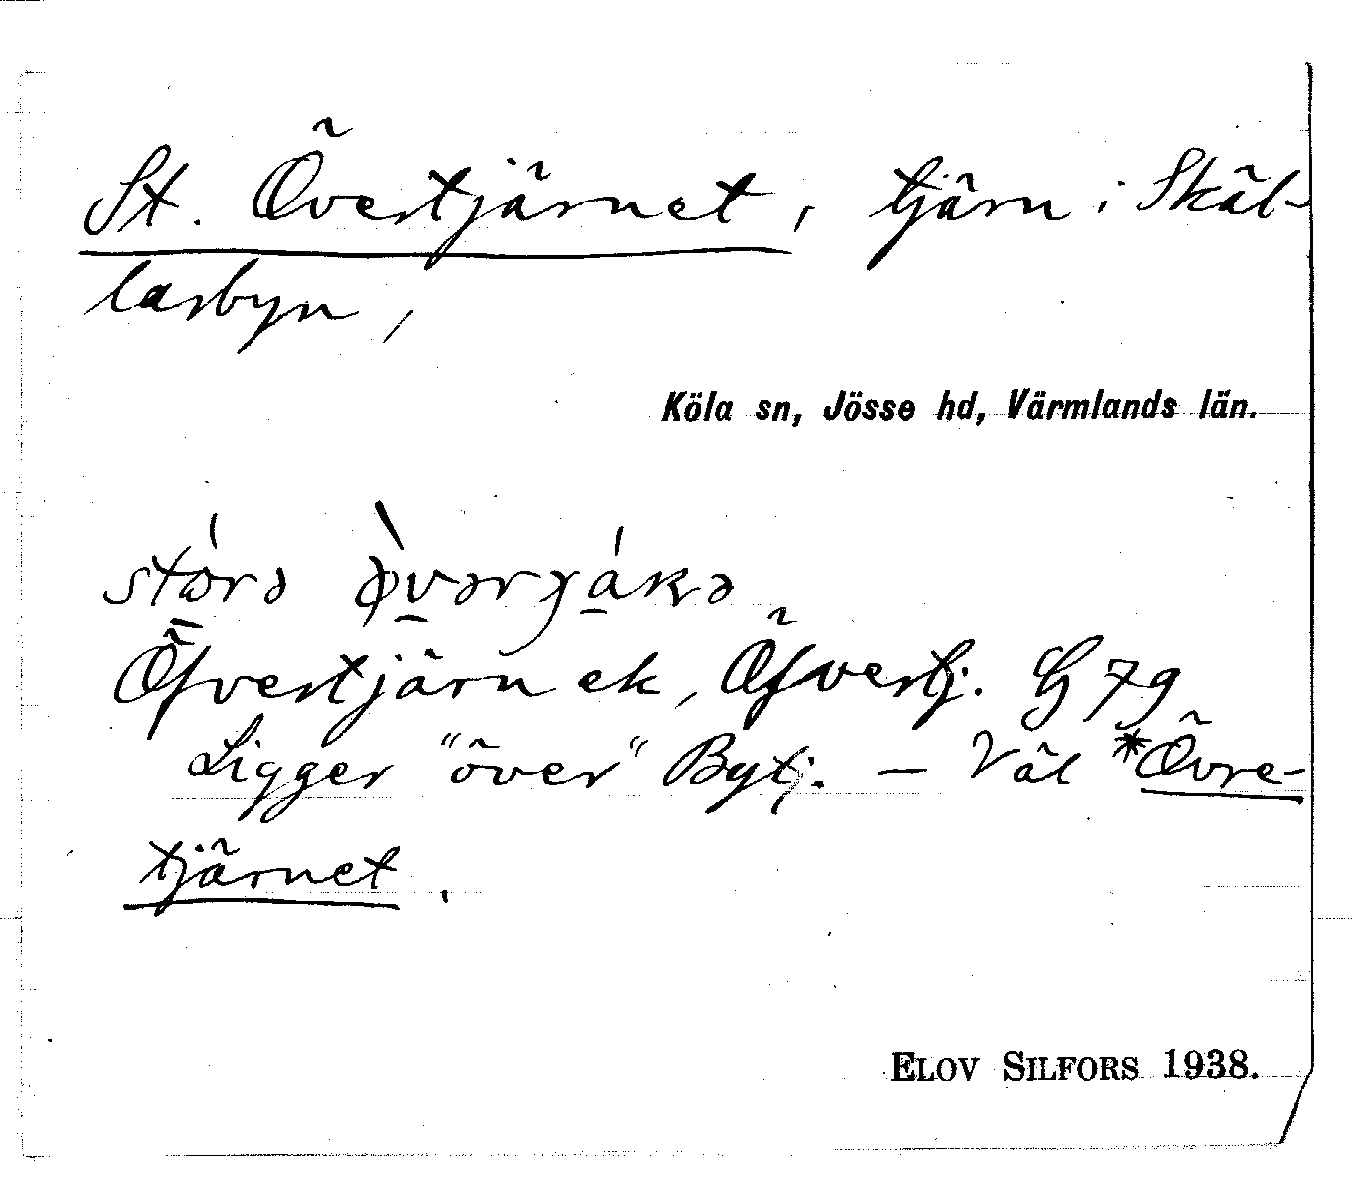 St. Övertjärnet, tjärn i Skäl-
larbyn,
Köla sn, Jösse hd, Värmlands län.
Öfvertjärn ek, Öfvertj. G 79
Ligger "över" Bytj. – Väl *Övre-
tjärnet.
ELOV SILFORS 1938.